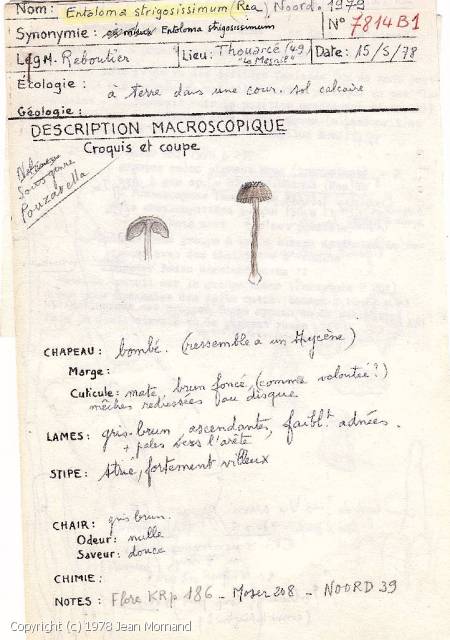 Nom: Entoloma strigosissimum (Rea) Noord. 1979
N° 7814B1
Synonymie: Entoloma strigosissimum
Leg M. Reboutier Lieu: Thouarcé (49) Date: 15/5/78
Écologie: à terre dans une cour. sol calcaire
Géologie:
DESCRIPTION MACROSCOPIQUE
Croquis et coupe
Sous genre
Pouzarella
CHAPEAU: bombé. (ressemble à un Mycène)
Marge:
Cuticule: mate, brun foncé, (comme veloutée?)
mèches redressées au disque
LAMES: gris-brun ascendantes, faiblt adnées.
+ pales vers l'arête
STIPE: strié, fortement villeux
CHAIR: gris brun.
Odeur: nulle
Saveur: douce
CHIMIE:
NOTES: Flore KRp 186 - Moser 208 - NOORD 39
Copyright (c) 1978 Jean Mornand